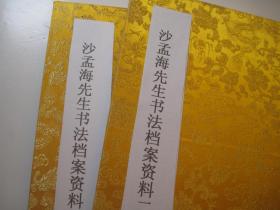 沙孟海先生书法档案资料
沙孟海先生书法档案资料一